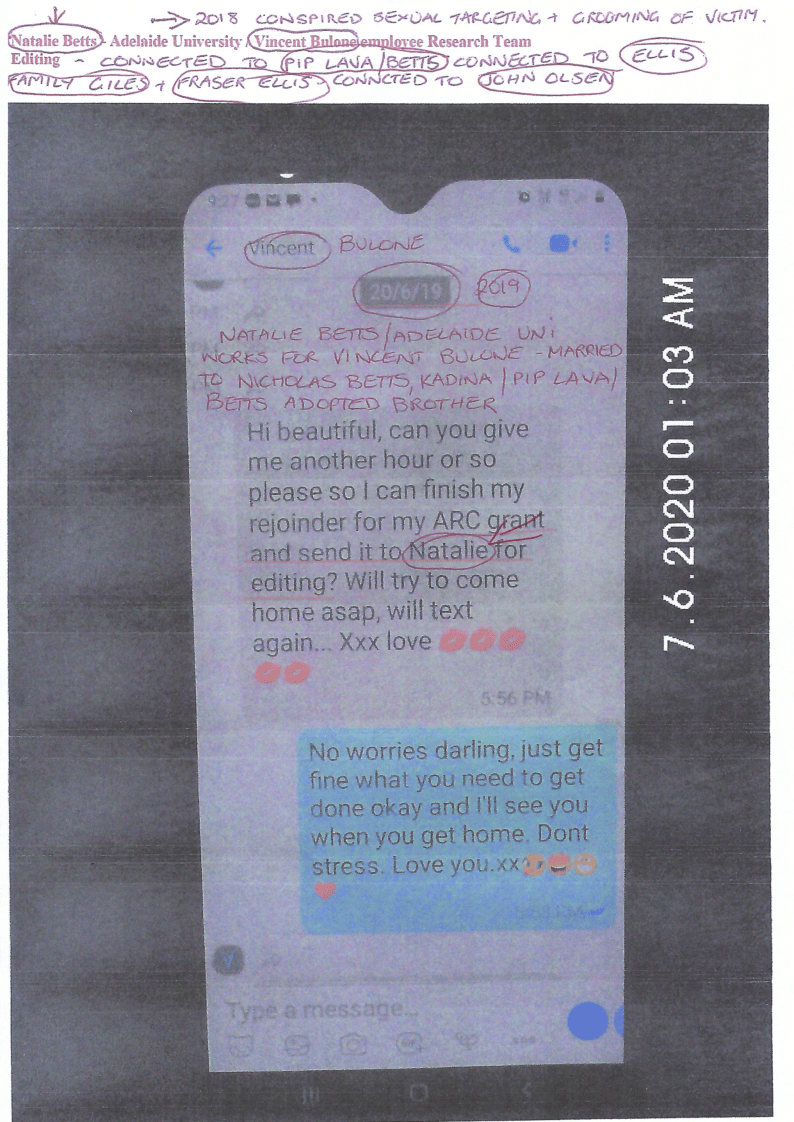 → 2018 CONSPIRED SEXUAL TARGETING + GROOMING OF VICTIM.
Natalie Betts - Adelaide University / Vincent Bulone employee Research Team
Editing - CONNECTED TO PIP LAVA/BETTS CONNECTED TO ELLIS
FAMILY GILES + FRASER ELLIS - CONNCTED TO JOHN OLSEN
9:27
Vincent BULONE
20/6/19 2019
NATALIE BETTS/ADELAIDE UNi
WORKS FOR VINCENT BULONE - MARRIED
TO NICHOLAS BETTS, KADINA / PIP LAVA/
BETTS ADOPTED BROTHER
Hi beautiful, can you give
me another hour or so
please so I can finish my
rejoinder for my ARC grant
and send it to Natalie for
editing? Will try to come
home asap, will text
again... Xxx love 💋💋💋
💋💋
5:56 PM
No worries darling, just get
fine what you need to get
done okay and I'll see you
when you get home. Dont
stress. Love you.xx
Type a message...
7.6.2020 01:03 AM